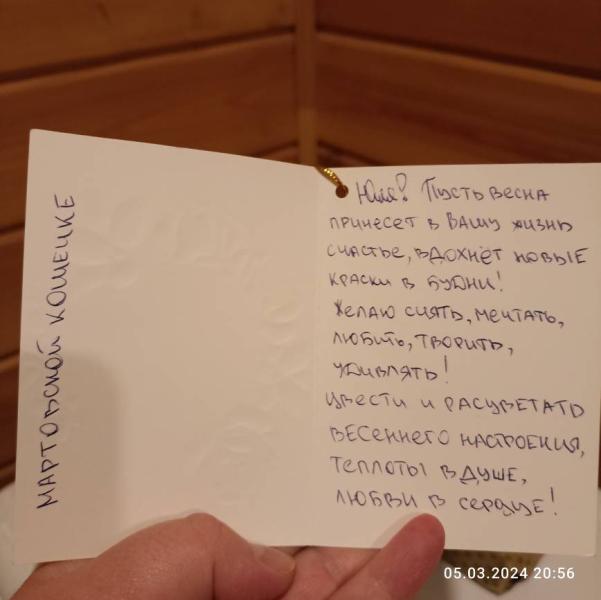 МАРТОВСКОЙ КОШЕЧКЕ
Юля! Пусть весна
принесет в Вашу жизнь
счастье, вдохнёт новые
краски в будни!
Желаю сиять, мечтать,
любить, творить,
удивлять!
Цвести и расцветать
весеннего настроения,
теплоты в душе,
любви в сердце!
05.03.2024 20:56